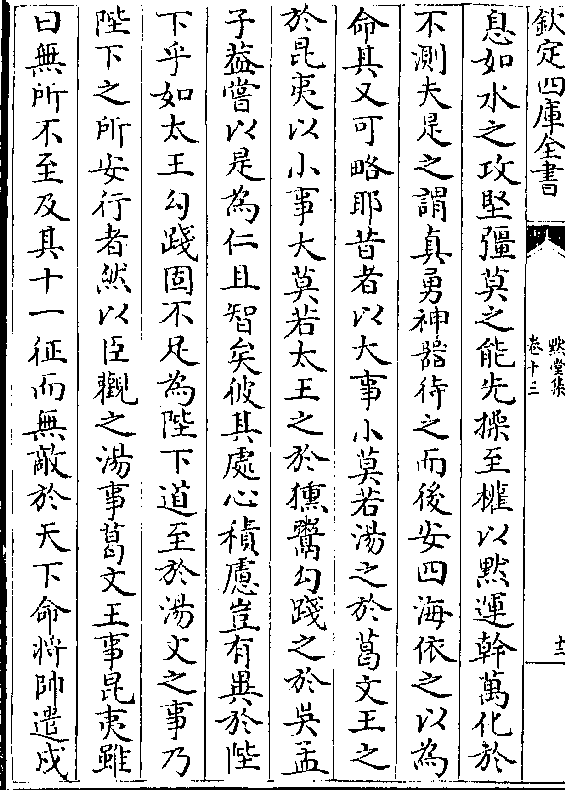 欽定四庫全書
默堂集
卷十三
十二
息如水之攻堅彊莫之能先操至權以默運幹萬化於
不測夫是之謂真勇神器待之而後安四海依之以為
命其又可略耶昔者以大事小莫若湯之於葛文王之
於昆夷以小事大莫若太王之於獯鬻勾踐之於吳孟
子葢嘗以是為仁且智矣彼其處心積慮豈有異於陛
下乎如太王勾踐固不足為陛下道至於湯文之事乃
陛下之所安行者然以臣觀之湯事葛文王事昆夷雖
曰無所不至及其十一征而無敵於天下命將帥遣戍